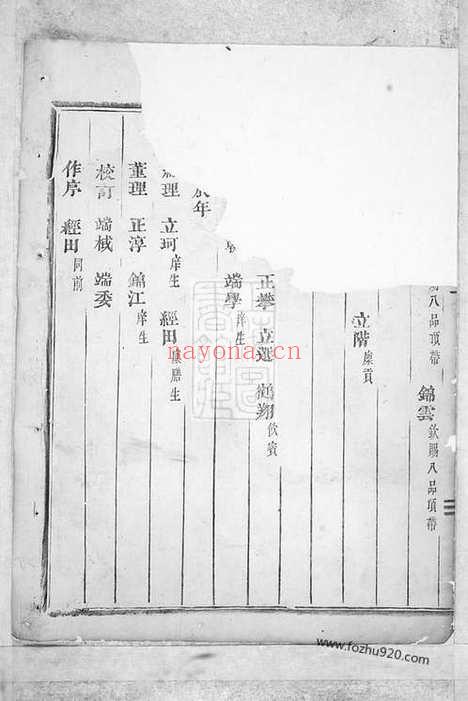 八品頂帶 錦雲 欽賜八品頂帶
立階 廩貢
正攀 立選 鶴翔 飲賓
端學 庠生
年
理 立珂 庠生 經田 廩膳生
董理 正淳 錦江 庠生
校訂 端棫 端委
作序 經田 同前
nayona.cn
www.fozhu920.com